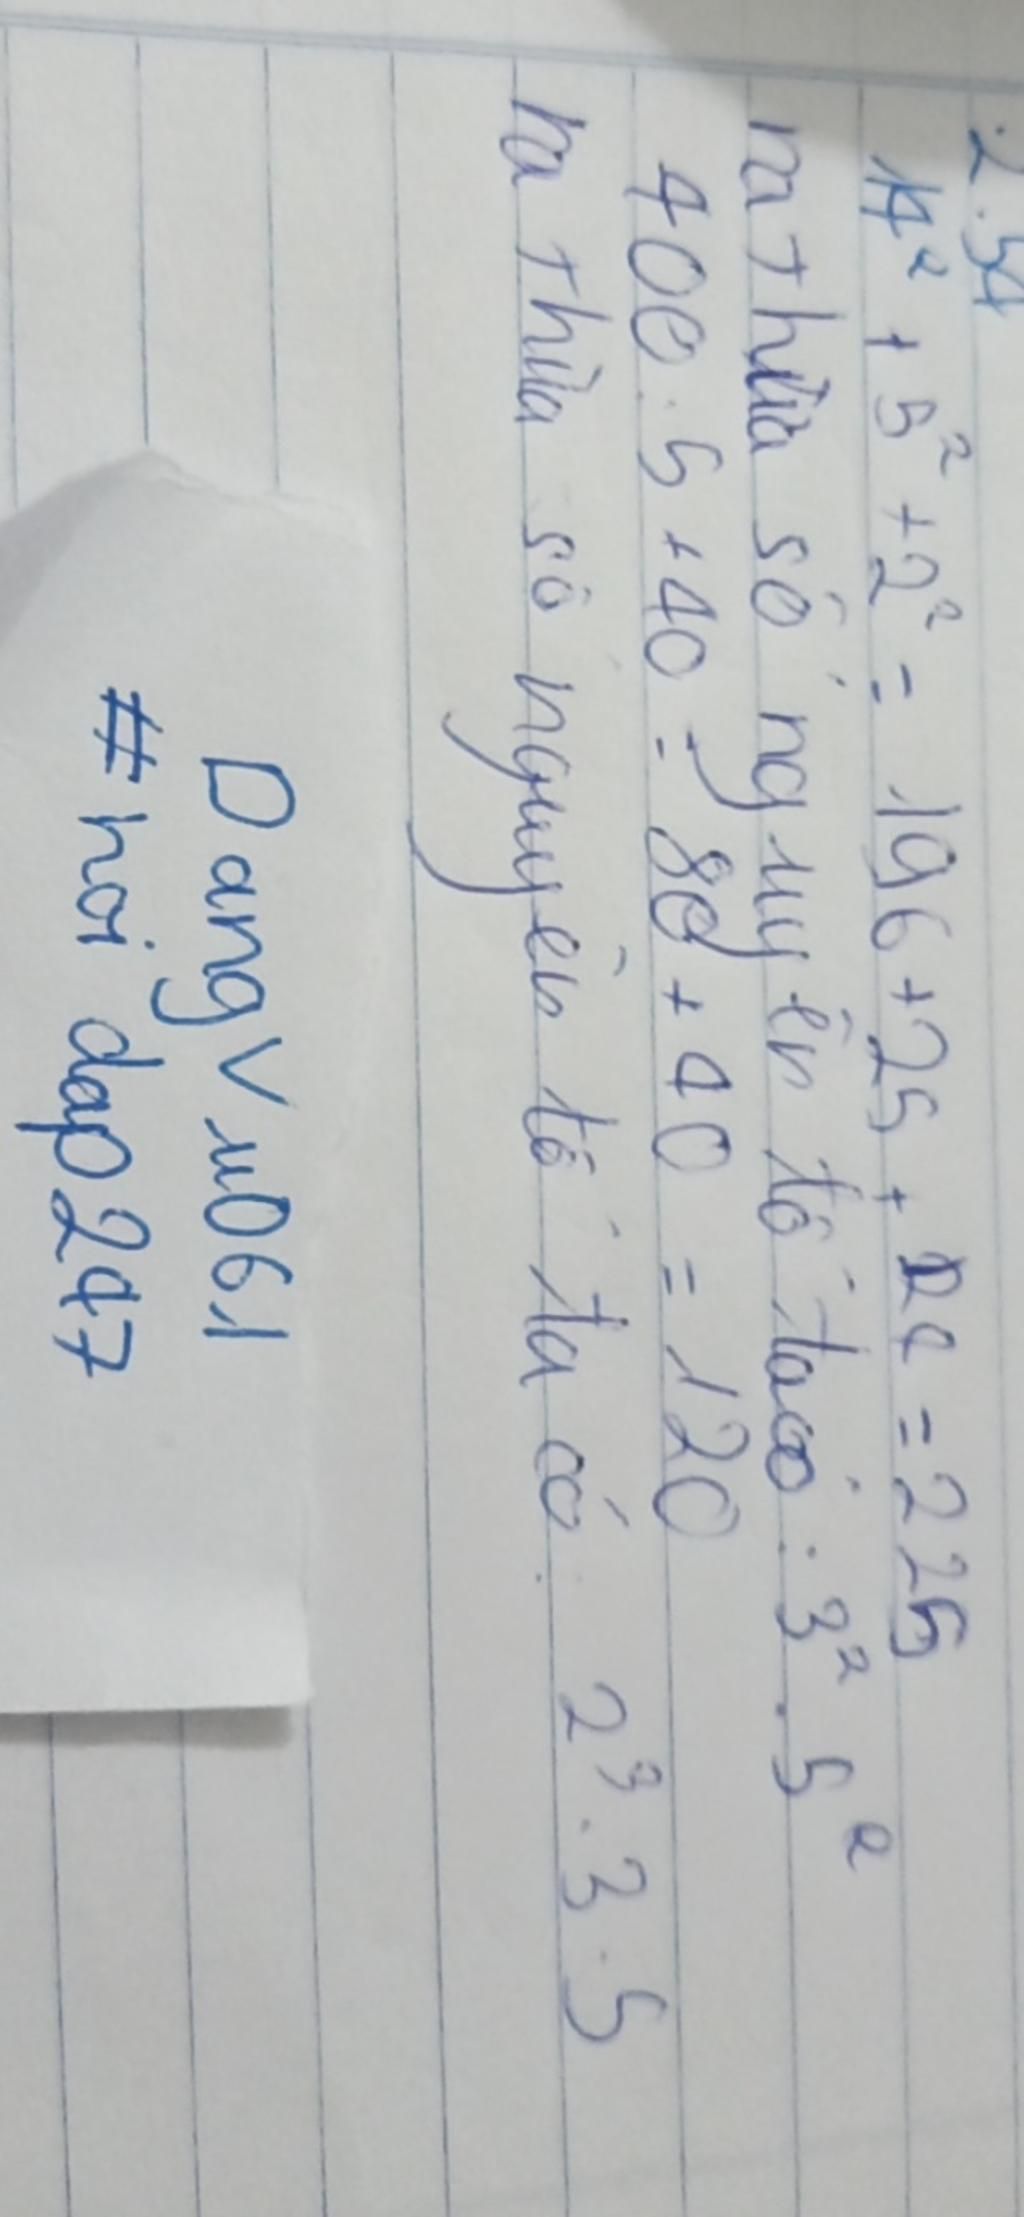 2.54
14² + 5² + 2² = 196 + 25 + 4 = 225
ra thừa số nguyên tố ta có : 3² . 5²
400 : 5 + 40 = 80 + 40 = 120
ra thừa số nguyên tố ta có : 2³ . 3 . 5
DangVu061
#hoidap247